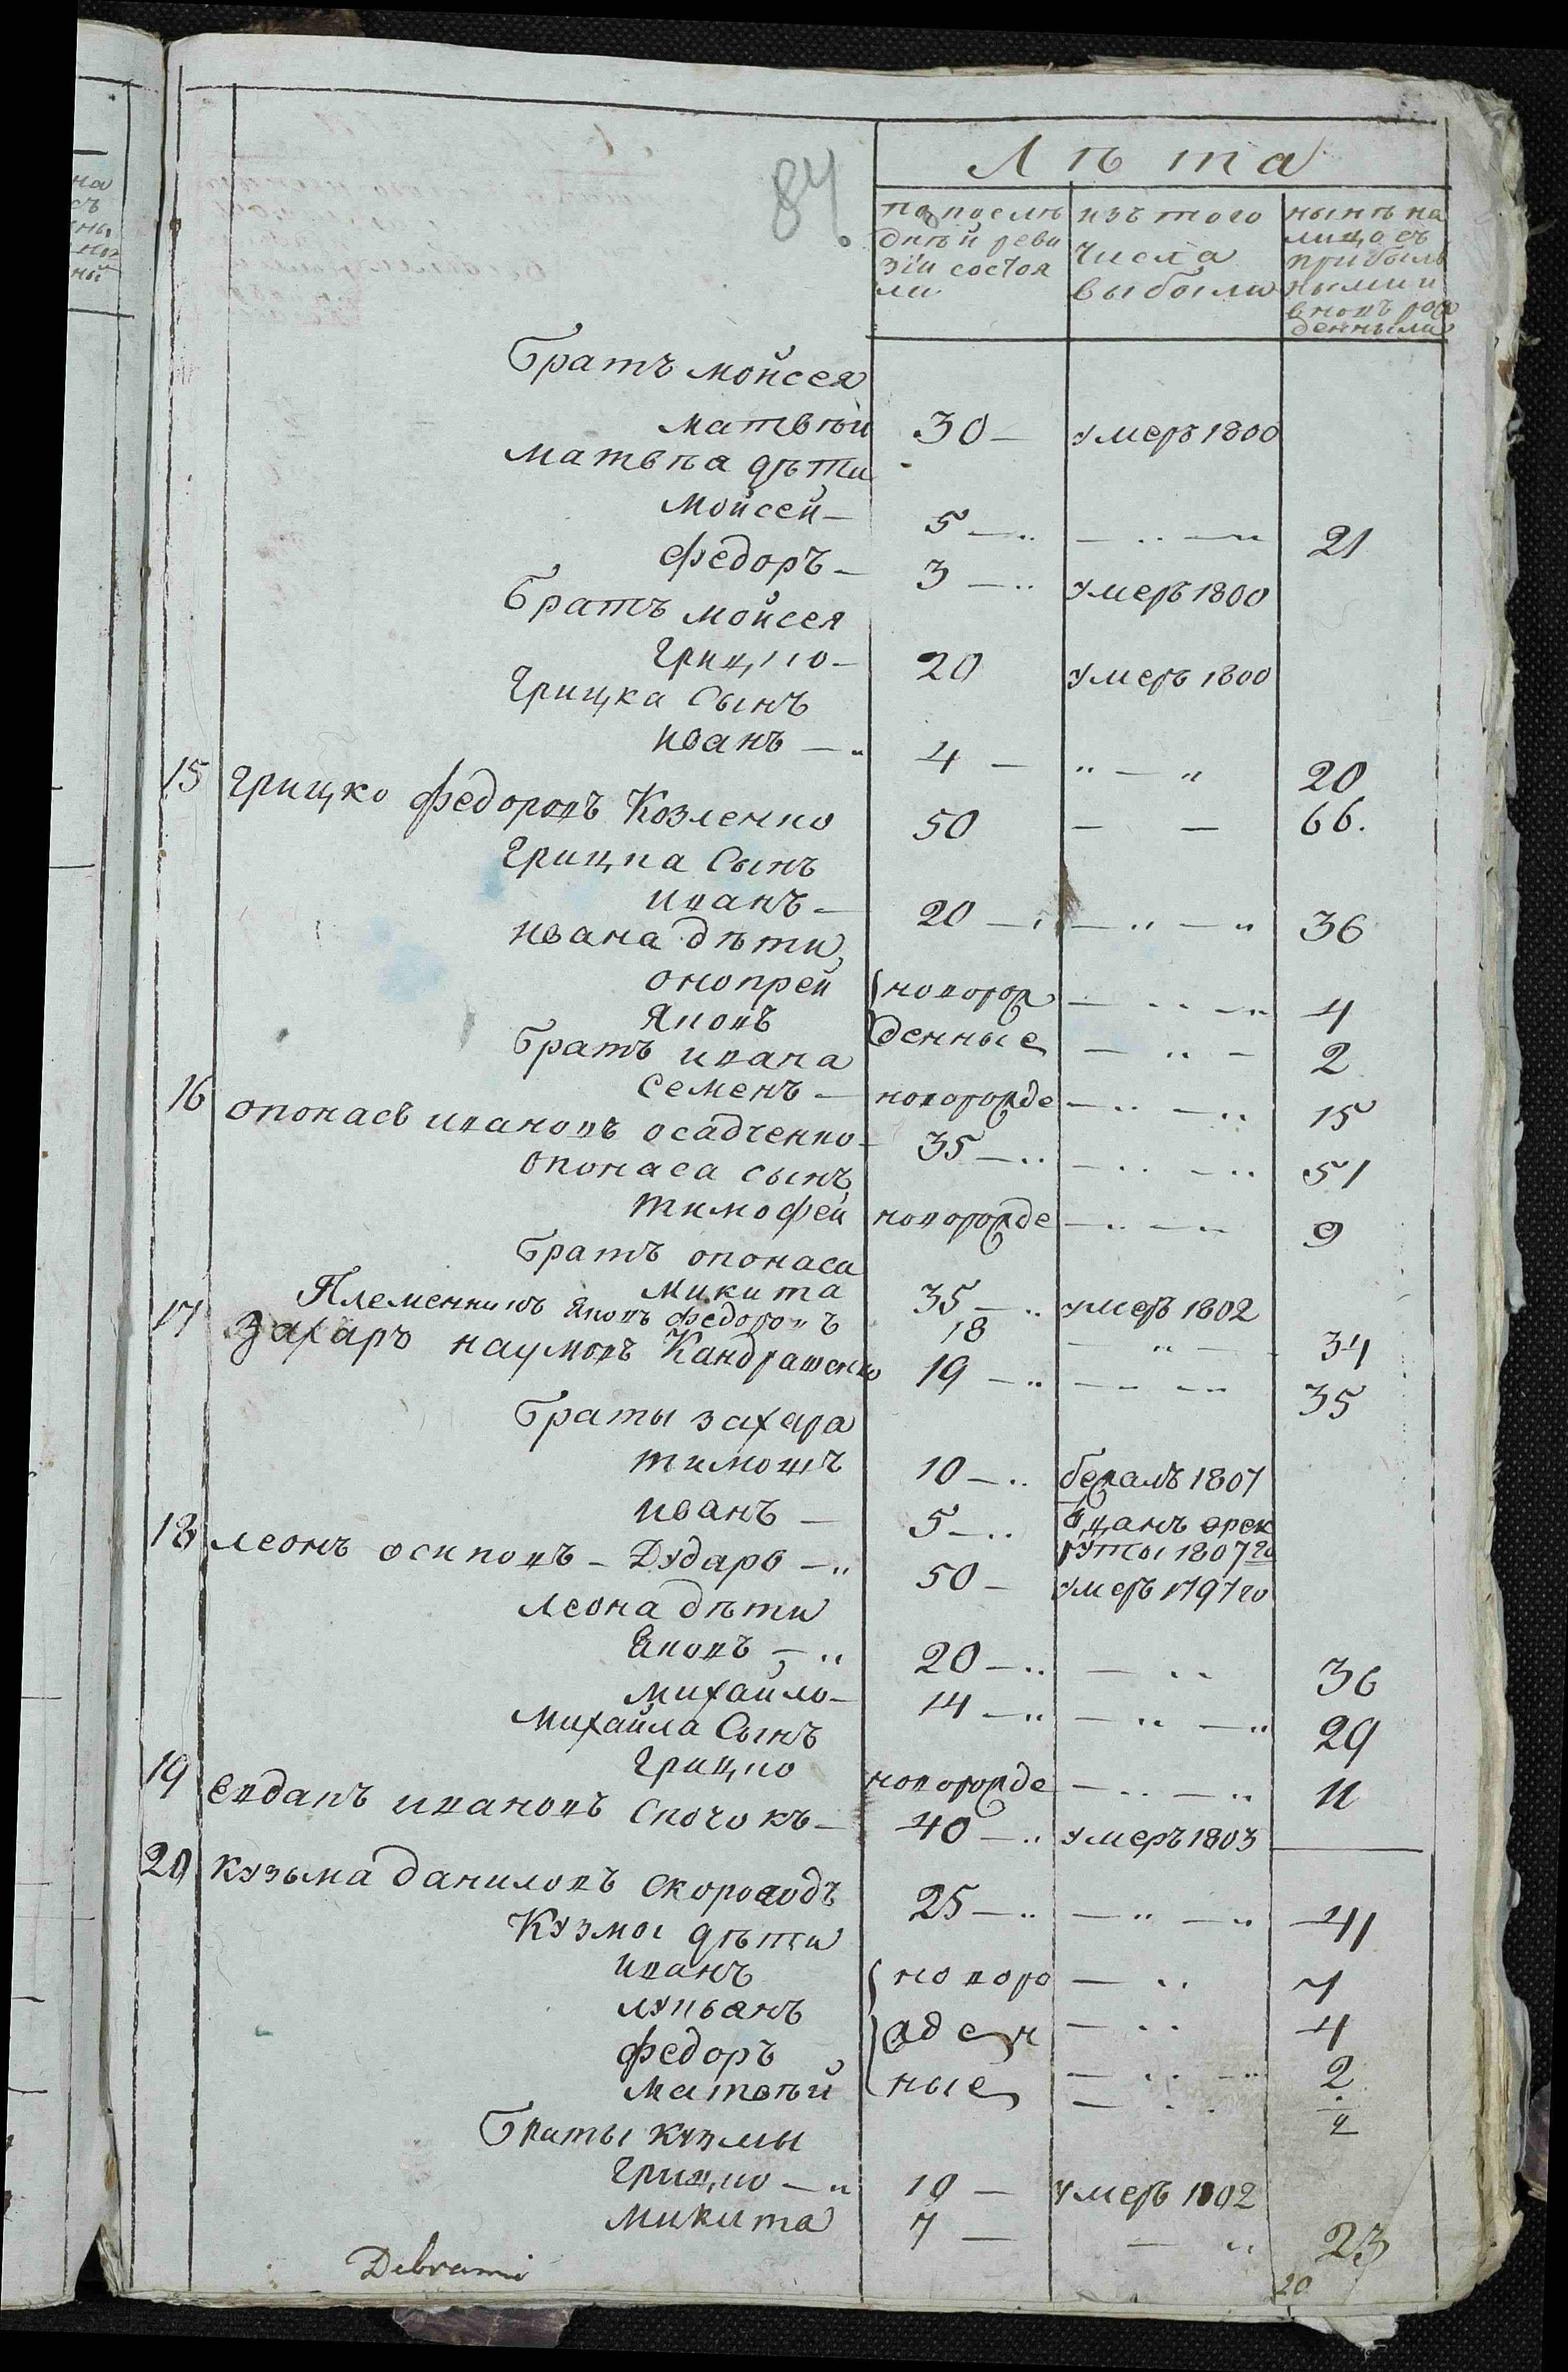 84
Лѣта
по послѣ
дней реви
зіи состоя
ли
изъ того
числа
выбыли
нынѣ на
лицо съ
прибыль
ными и
вновь рож
денными
Братъ мойсея
матвѣй 30 — умеръ 1800
матвѣя дѣти
мойсей — 5 — „ — „ — „ 21
федоръ — 3 — „ умеръ 1800
Братъ мойсея
грицко — 20 умеръ 1800
Грицка Сынъ
иванъ — „ 4 — „ — „ 20
15 грицко федоровъ Козленко 50 — — 66.
Грицка Сынъ
иванъ — 20 — „ — „ — „ 36
ивана дѣти
онопрей новорож — „ — „ 4
Яковъ денные — „ — 2
Братъ ивана
семенъ — новорожде — „ — „ 15
16 опонасъ ивановъ осадченко — 35 — „ — „ — „ 51
опонаса сынъ
тимофей новорожде — „ — „ 9
Братъ опонаса
микита 35 — „ умеръ 1802
Племенникъ Яковъ федоровъ 18 — „ — 34
17 Захаръ наумовъ Кандратенко 19 — „ — „ — „ 35
Браты захара
тимошъ 10 — „ бежалъ 1807
иванъ — 5 — „ ѡданъ врек
руты 1807 го
18 леонъ осиповъ — Дударь — „ 50 — умеръ 1797 го
леона дѣти
Яковъ — „ 20 — „ — „ 36
михайло — 14 — „ — „ — „ 29
Михайла Сынъ
грицко новорожде — „ — „ 11
19 Евдапъ ивановъ Скочокъ — 40 — „ умеръ 1803 —
20 кузьма даниловъ скороходъ 25 — „ — „ — „ 41
Кузмы дѣти
иванъ новоро — „ 7
лукьянъ жден — „ 4
федоръ ные — „ — „ 2
матвѣй — „
Браты кузмы
грицко — „ 10 — умеръ 1802
микита 7 — — „ 23
20